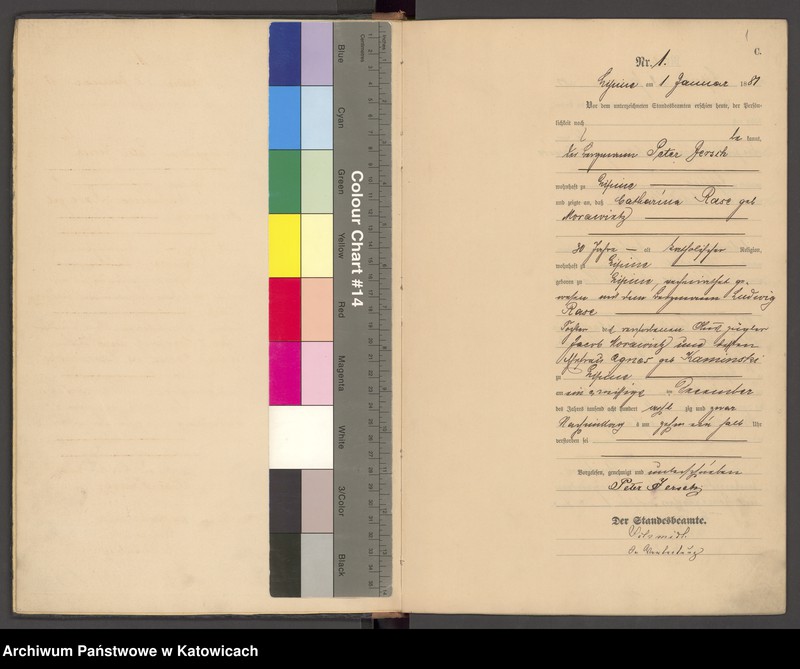 Blue
Cyan
Green
Yellow
Red
Magenta
White
3/Color
Black
Colour Chart #14
Centimetres
Inches
1
C.
Nr. 1.
Lipine am 1 Januar 1881
Vor dem unterzeichneten Standesbeamten erschien heute, der Persön-
lichkeit nach
be kannt,
der Bergmann Peter Jersch
wohnhaft zu Lipine
und zeigte an, daß Catharina Rare geb
Morawietz
30 Jahre alt katholischer Religion,
wohnhaft zu Lipine
geboren zu Lipine, verheirathet ge-
wesen mit dem Bergmann Ludwig
Rare
Tochter des verstorbenen
Jacob Morawietz und dessen
Ehefrau Agnes geb Kaminski
zu Lipine
am ein dreißigst en December
des Jahres tausend acht hundert acht zig und zwar
Nachmittag s um zehn ein halb Uhr
verstorben sei
Vorgelesen, genehmigt und unterschrieben
Peter Jersch
Der Standesbeamte.
In Vertretung
Archiwum Państwowe w Katowicach